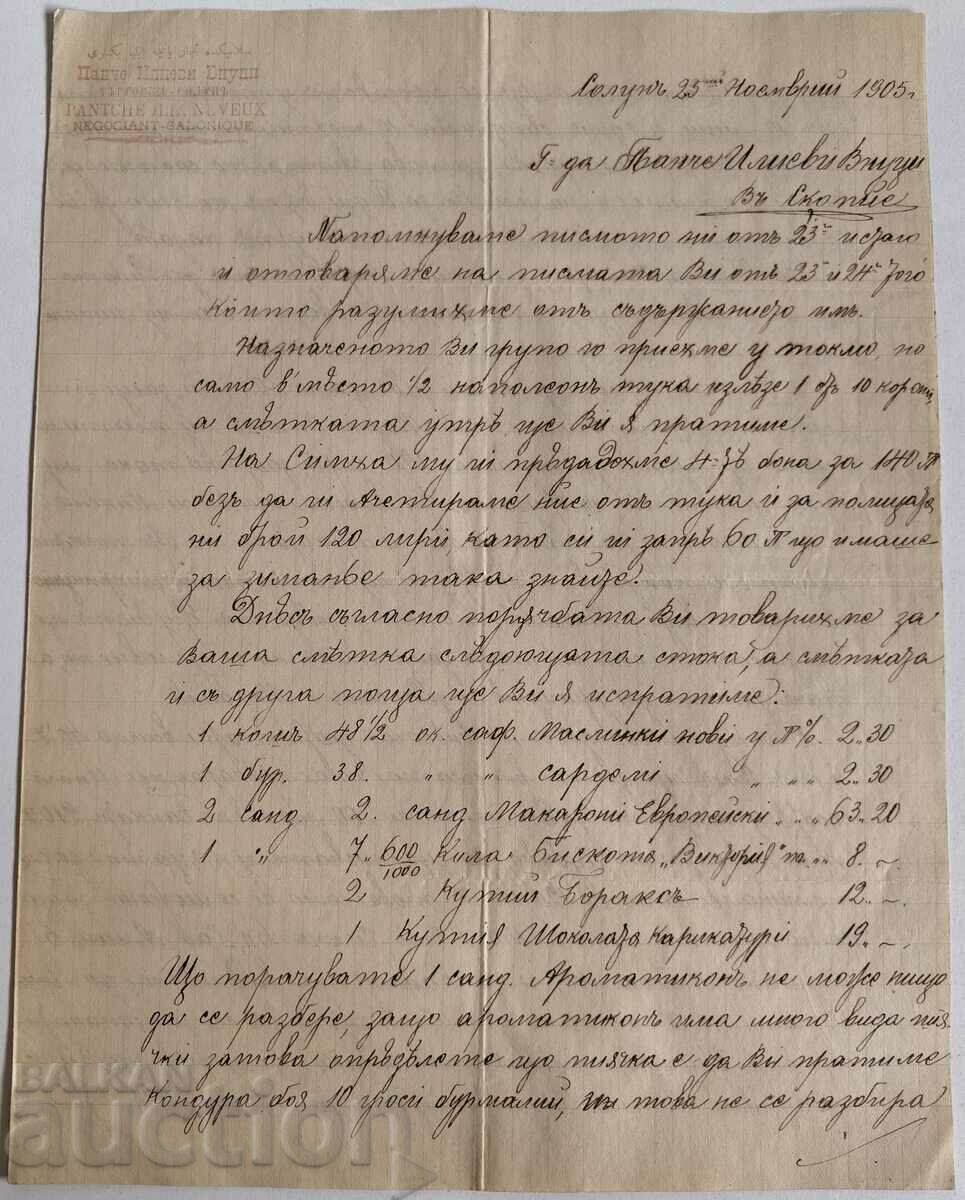 Панче Илиеви Внуци
PANTCHE NEVEUX
NÉGOCIANT-SALONIQUE
Солунъ 25 Ноемврий 1905 г.
Г-да Панче Илиеви Внуци
Въ Скопие
Напомнуваме писмото ни отъ 23и истаго
и отговаряме на писмата Ви отъ 23и и 24и того
които разумихме отъ съдържанието имъ.
Назначеното Ви групо го приехме у токмо, но
само в'место 1/2 наполеонъ тука излѣзе 1 отъ 10 корони,
а смѣтката утрѣ ще Ви я пратиме.
На Симха му ги прѣдадохме 4-тѣ бона за 140 П
безъ да ги ачетираме ние отъ тука и за полицата
ни брои 120 лири, като си ги запрѣ 60 П що имаше
за зиманье така знайте.
Днѣсъ съгласно порѫчбата Ви товарихме за
Ваша смѣтка слѣдоющата стока, а смѣтката
и съ друга поща ще Ви я испратиме:
1 кошъ 48 1/2 ок. саф. Маслинки нови у П %. 2.30
1 бур. 38. " " сардели " " " 2.30
2 санд. 2. санд Макарони Европейски " " " 63.20
1 " 7. 600/1000 Кила Бискота "Виктория" " " 8. ~
2 Кутии Бораксъ 12. ~.
1 Кутия Шоколата карикатури 19. ~
Що порачувате 1 санд. Ароматиконъ не може нищо
да се разбере, защо ароматиконъ има много вида пия
чки затова опрѣделете що пиячка е да Ви пратиме
Кондура боя 10 гроси бурмалии, и това не се разбира
БАЛКАН
auction